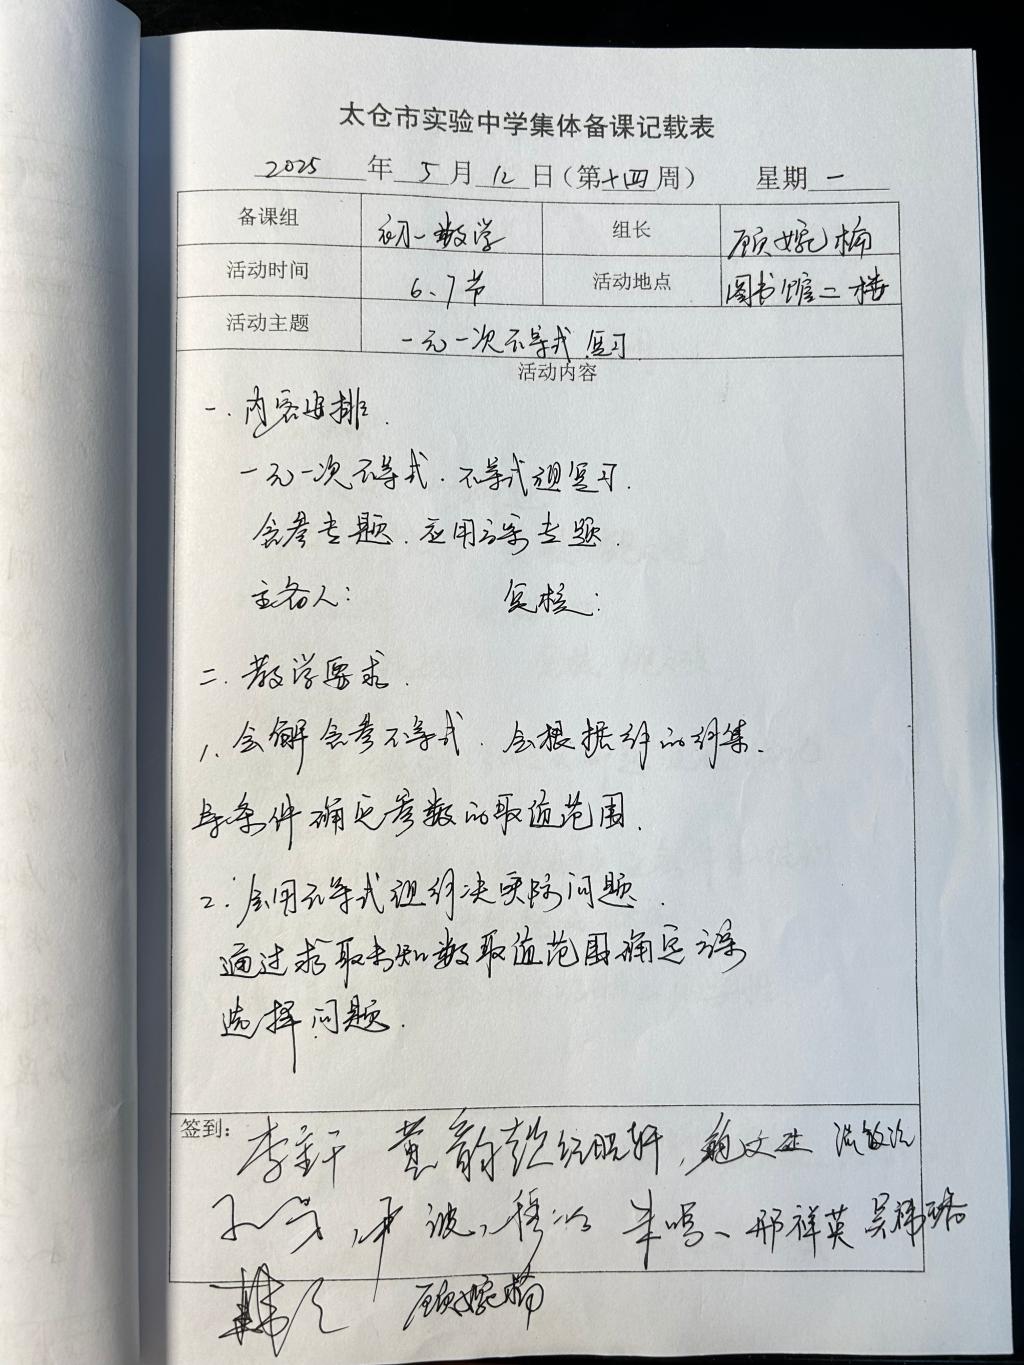 太仓市实验中学集体备课记载表
2025年5月12日（第十四周） 星期一
备课组 初一数学 组长 顾婉楠
活动时间 6、7节 活动地点 图书馆二楼
活动主题 一元一次不等式复习
活动内容
一. 内容安排.
一元一次不等式. 不等式组复习.
含参专题. 应用方案专题.
主备人： 复核：
二. 教学要求.
1. 会解含参不等式. 会根据解的解集.
与条件确定参数的取值范围.
2. 会用不等式组解决实际问题.
通过求取未知数取值范围确定方案
选择问题.
签到：
邢祥英
顾婉楠